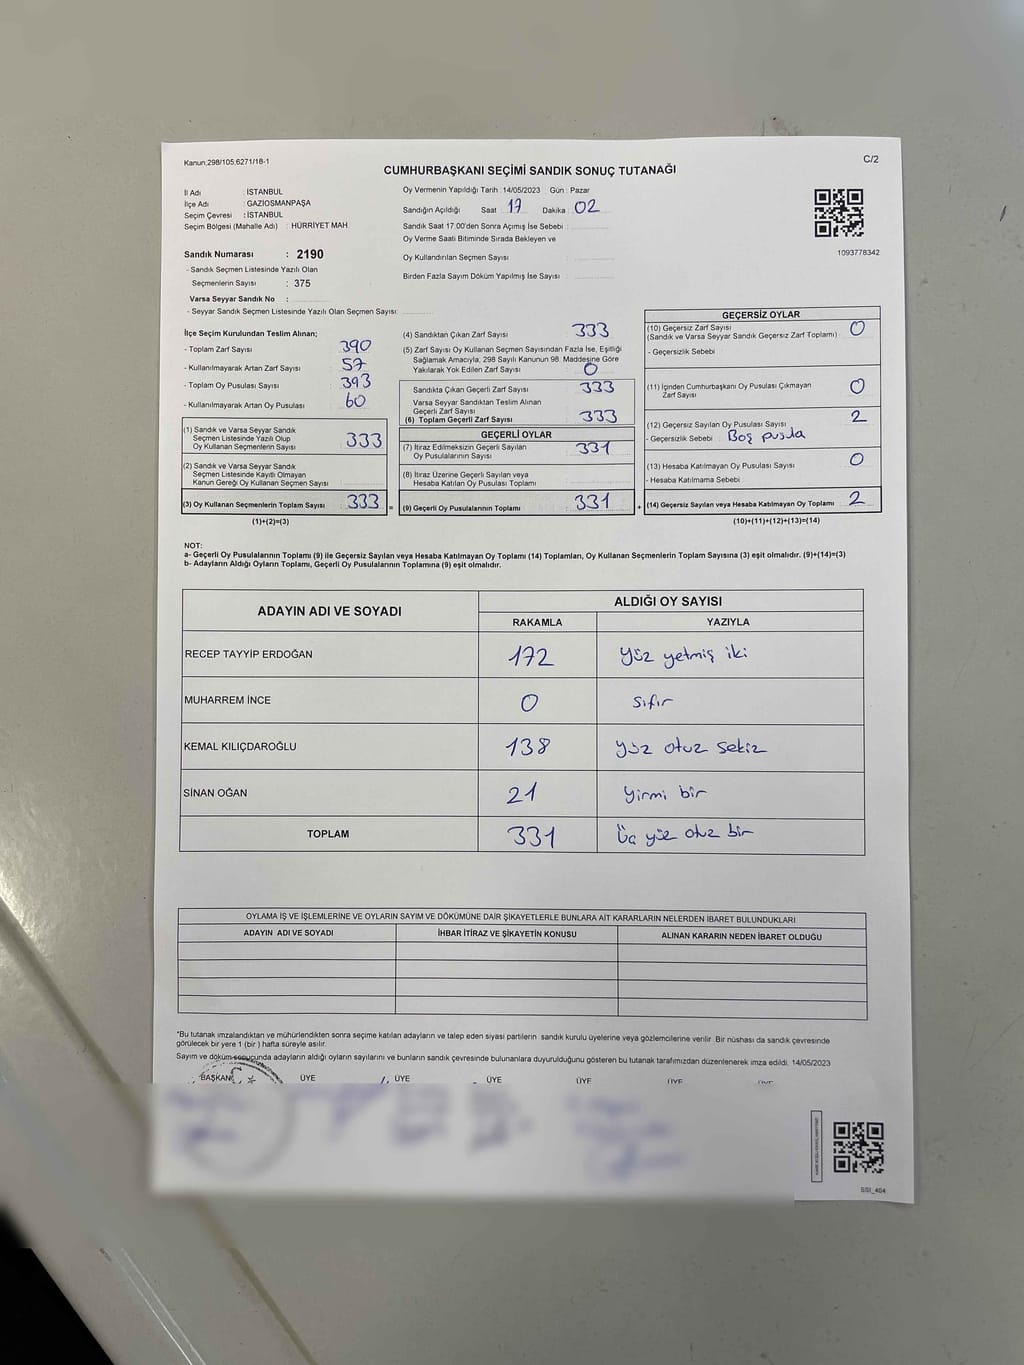 Kanun;298/105;6271/18-1
C/2
CUMHURBAŞKANI SEÇİMİ SANDIK SONUÇ TUTANAĞI
İl Adı : İSTANBUL
İlçe Adı : GAZİOSMANPAŞA
Seçim Çevresi : İSTANBUL
Seçim Bölgesi (Mahalle Adı) : HÜRRİYET MAH
Sandık Numarası : 2190
- Sandık Seçmen Listesinde Yazılı Olan
Seçmenlerin Sayısı : 375
Varsa Seyyar Sandık No :
- Seyyar Sandık Seçmen Listesinde Yazılı Olan Seçmen Sayısı:
Oy Vermenin Yapıldığı Tarih : 14/05/2023 Gün : Pazar
Sandığın Açıldığı Saat 17 Dakika 02
Sandık Saat 17.00'den Sonra Açımış İse Sebebi :
Oy Verme Saati Bitiminde Sırada Bekleyen ve
Oy Kullandırılan Seçmen Sayısı :
Birden Fazla Sayım Döküm Yapılmış İse Sayısı :
1093778342
İlçe Seçim Kurulundan Teslim Alınan;
- Toplam Zarf Sayısı 390
- Kullanılmayarak Artan Zarf Sayısı 57
- Toplam Oy Pusulası Sayısı 393
- Kullanılmayarak Artan Oy Pusulası 60
(1) Sandık ve Varsa Seyyar Sandık
Seçmen Listesinde Yazılı Olup
Oy Kullanan Seçmenlerin Sayısı 333
(2) Sandık ve Varsa Seyyar Sandık
Seçmen Listesinde Kayıtlı Olmayan
Kanun Gereği Oy Kullanan Seçmen Sayısı
(3) Oy Kullanan Seçmenlerin Toplam Sayısı 333 =
(1)+(2)=(3)
(4) Sandıktan Çıkan Zarf Sayısı 333
(5) Zarf Sayısı Oy Kullanan Seçmen Sayısından Fazla İse, Eşitliği
Sağlamak Amacıyla, 298 Sayılı Kanunun 98. Maddesine Göre
Yakılarak Yok Edilen Zarf Sayısı 0
Sandıkta Çıkan Geçerli Zarf Sayısı 333
Varsa Seyyar Sandıktan Teslim Alınan
Geçerli Zarf Sayısı
(6) Toplam Geçerli Zarf Sayısı 333
GEÇERLİ OYLAR
(7) İtiraz Edilmeksizin Geçerli Sayılan
Oy Pusulalarının Sayısı 331
(8) İtiraz Üzerine Geçerli Sayılan veya
Hesaba Katılan Oy Pusulası Toplamı
(9) Geçerli Oy Pusulalarının Toplamı 331 +
GEÇERSİZ OYLAR
(10) Geçersiz Zarf Sayısı 0
(Sandık ve Varsa Seyyar Sandık Geçersiz Zarf Toplamı)
- Geçersizlik Sebebi
(11) İçinden Cumhurbaşkanı Oy Pusulası Çıkmayan
Zarf Sayısı 0
(12) Geçersiz Sayılan Oy Pusulası Sayısı 2
- Geçersizlik Sebebi : Boş pusula
(13) Hesaba Katılmayan Oy Pusulası Sayısı 0
- Hesaba Katılmama Sebebi
(14) Geçersiz Sayılan veya Hesaba Katılmayan Oy Toplamı 2
(10)+(11)+(12)+(13)=(14)
NOT:
a- Geçerli Oy Pusulalarının Toplamı (9) ile Geçersiz Sayılan veya Hesaba Katılmayan Oy Toplamı (14) Toplamları, Oy Kullanan Seçmenlerin Toplam Sayısına (3) eşit olmalıdır. (9)+(14)=(3)
b- Adayların Aldığı Oyların Toplamı, Geçerli Oy Pusulalarının Toplamına (9) eşit olmalıdır.
ADAYIN ADI VE SOYADI ALDIĞI OY SAYISI
RAKAMLA YAZIYLA
RECEP TAYYİP ERDOĞAN 172 Yüz yetmiş iki
MUHARREM İNCE 0 Sıfır
KEMAL KILIÇDAROĞLU 138 yüz otuz sekiz
SİNAN OĞAN 21 Yirmi bir
TOPLAM 331 Üç yüz otuz bir
OYLAMA İŞ VE İŞLEMLERİNE VE OYLARIN SAYIM VE DÖKÜMÜNE DAİR ŞİKAYETLERLE BUNLARA AİT KARARLARIN NELERDEN İBARET BULUNDUKLARI
ADAYIN ADI VE SOYADI İHBAR İTİRAZ VE ŞİKAYETİN KONUSU ALINAN KARARIN NEDEN İBARET OLDUĞU
*Bu tutanak imzalandıktan ve mühürlendikten sonra seçime katılan adayların ve talep eden siyasi partilerin sandık kurulu üyelerine veya gözlemcilerine verilir. Bir nüshası da sandık çevresinde
görülecek bir yere 1 (bir ) hafta süreyle asılır.
Sayım ve döküm sonucunda adayların aldığı oyların sayılarını ve bunların sandık çevresinde bulunanlara duyurulduğunu gösteren bu tutanak tarafımızdan düzenlenerek imza edildi. 14/05/2023
BAŞKAN ÜYE ÜYE ÜYE ÜYE ÜYE ÜYE
SSI_404